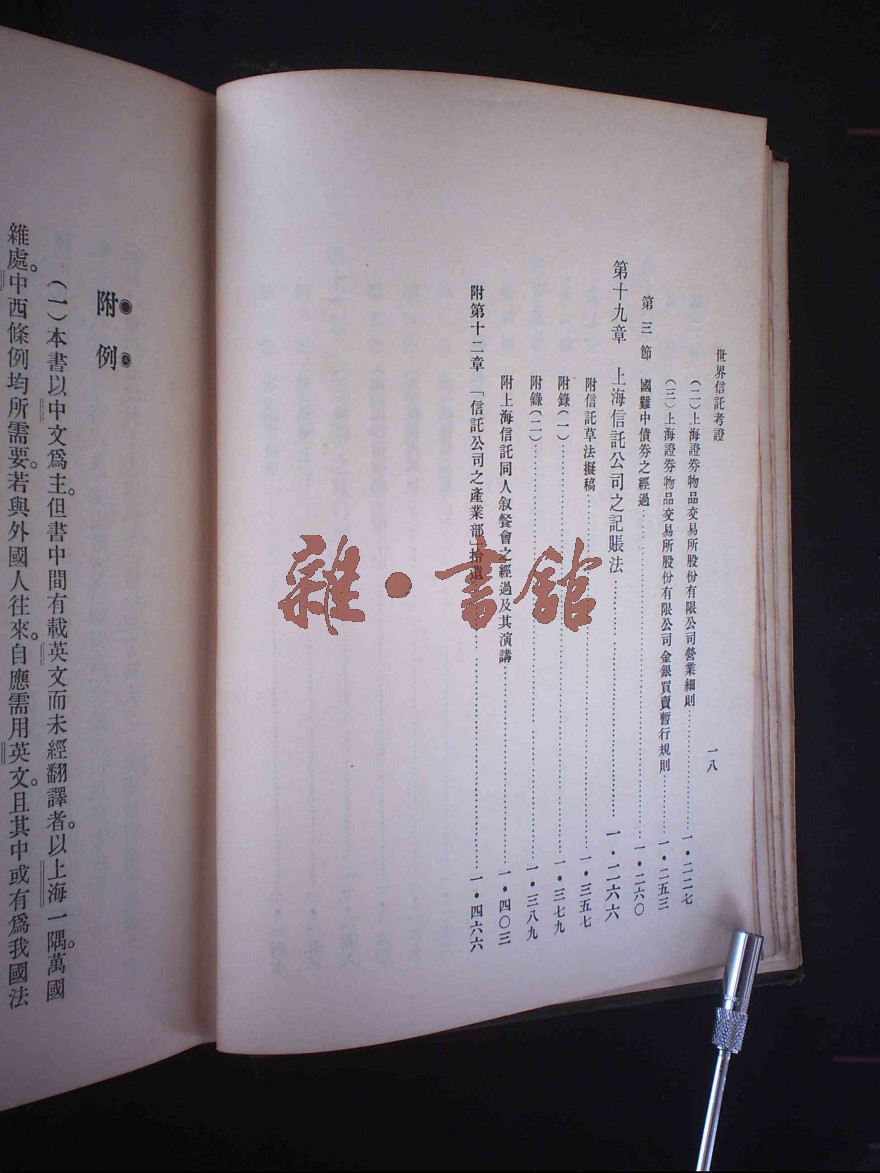 世界信託考證
一八
(二)上海證券物品交易所股份有限公司營業細則……一•二二七
(三)上海證券物品交易所股份有限公司金銀買賣暫行規則……一•二五三
第三節 國難中債券之經過……一•二六〇
第十九章 上海信託公司之記賬法……一•二六六
附信託草法擬稿……一•三五七
附錄(一)……一•三七九
附錄(二)……一•三八九
附上海信託同人叙餐會之經過及其演講……一•四〇三
附第十二章「信託公司之產業部」拾遺……一•四六六
附例
(一)本書以中文爲主。但書中間有載英文而未經翻譯者。以上海一隅。萬國
雜處。中西條例均所需要。若與外國人往來。自應需用英文。且其中或有爲我國法
雜•書館